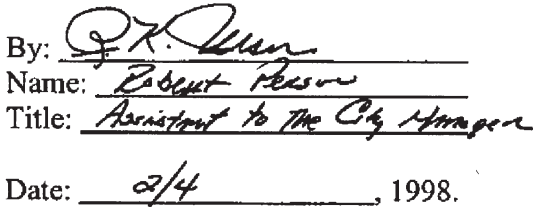 By: R. K. Person
Name: Robert Person
Title: Assistant to the City Manager
Date: 2/4, 1998.